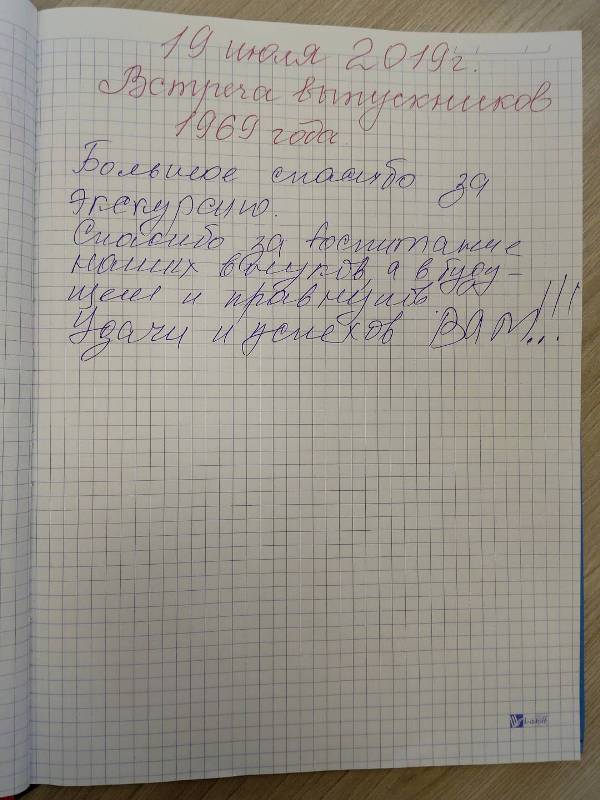 19 июля 2019г.
Встреча выпускников
1969 года
Большое спасибо за
экскурсию.
Спасибо за воспитание
наших внуков, а в буду-
щем и правнуков.
Удачи и успехов ВАМ...!!!